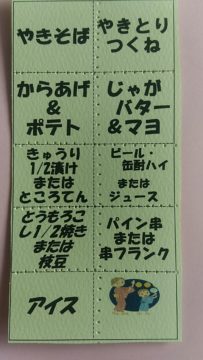 やきそば
やきとり
つくね
からあげ
&
ポテト
じゃが
バター
&マヨ
きゅうり
1/2漬け
または
ところてん
ビール・
缶酎ハイ
または
ジュース
とうもろこ
し1/2焼き
または
枝豆
パイン串
または
串フランク
アイス